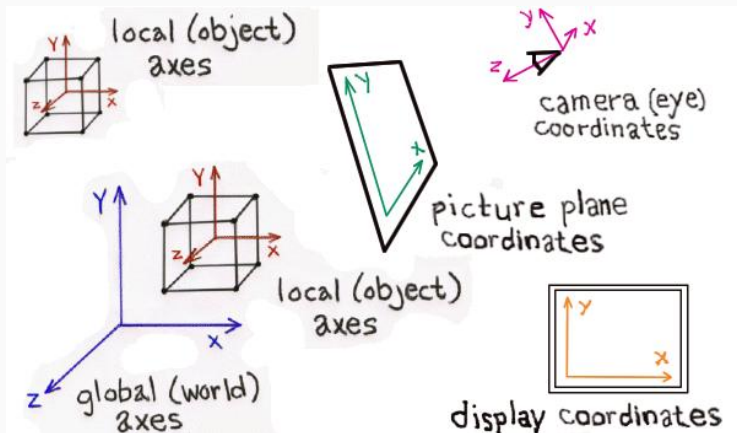 local (object)
axes
Y
X
Z
y
x
y
x
z
camera (eye)
coordinates
picture plane
coordinates
Y
X
Z
Y
X
Z
local (object)
axes
global (world)
axes
y
x
display coordinates